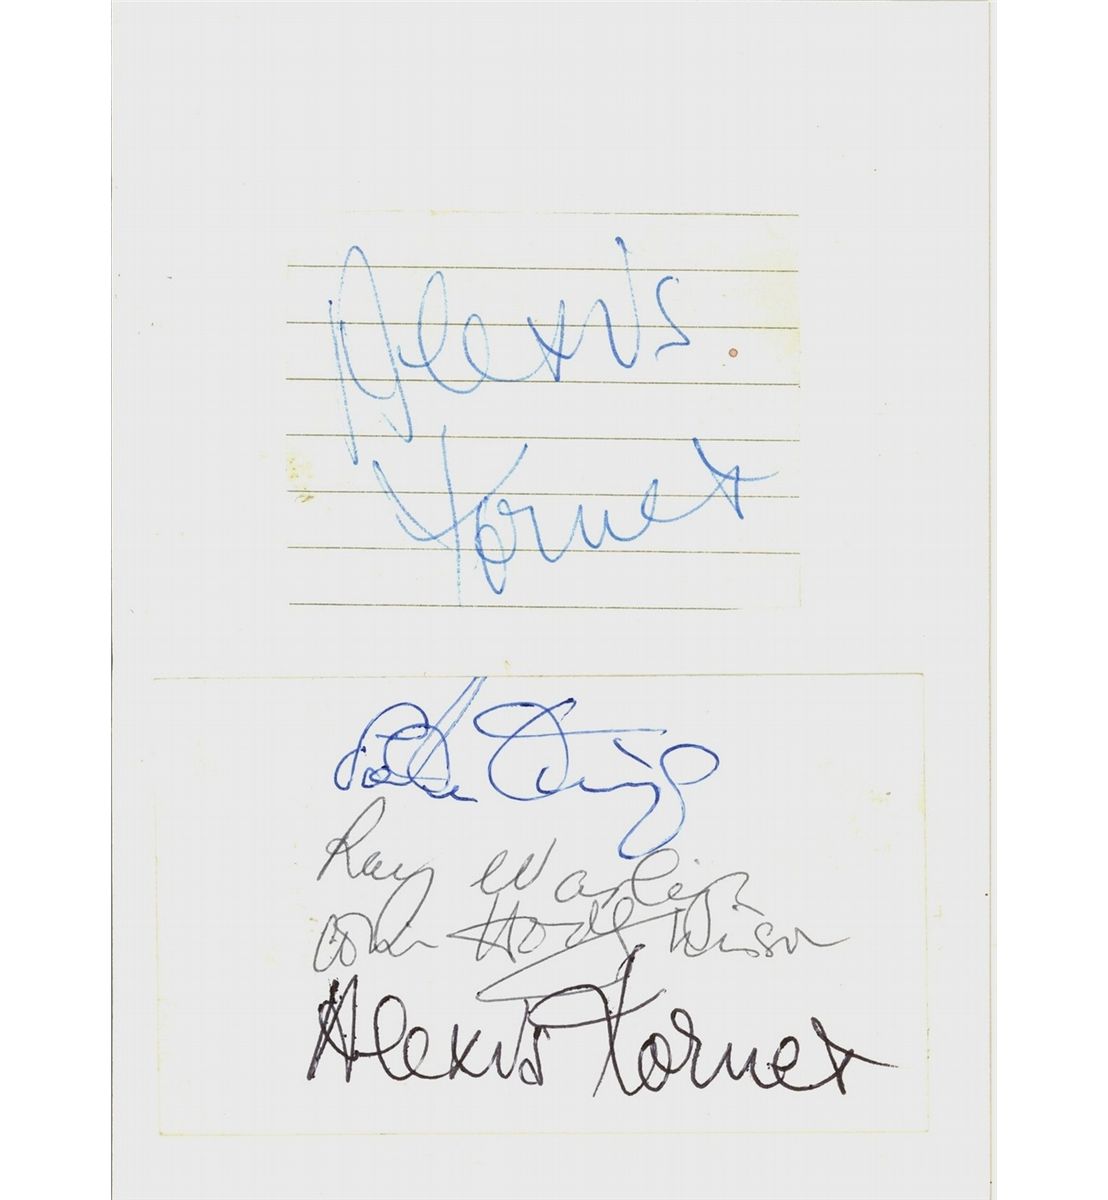 Alexis
Korner
Peter Thorup
Ray Warleigh
Colin Hodgkinson
Alexis Korner